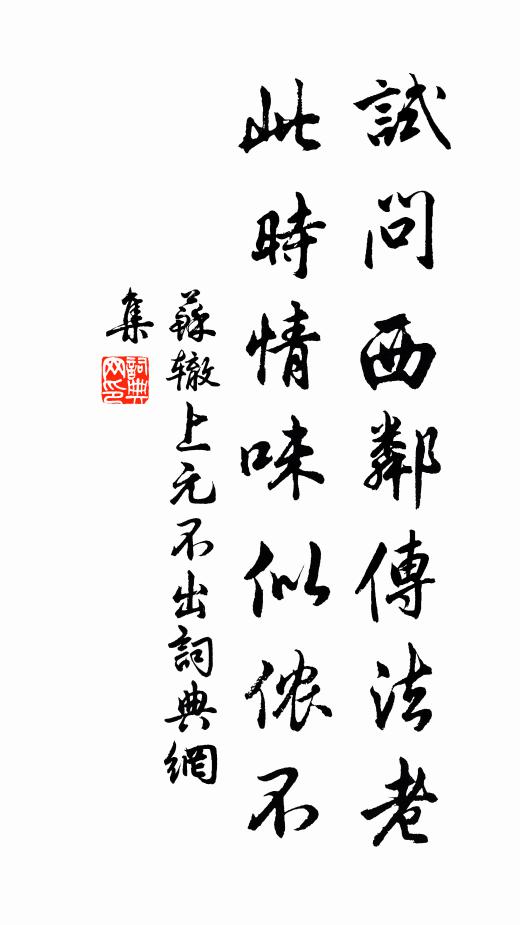 試問西鄰傳法老
此時情味似侬不
蘇辙上元不出詞典網
集
詞典
网印